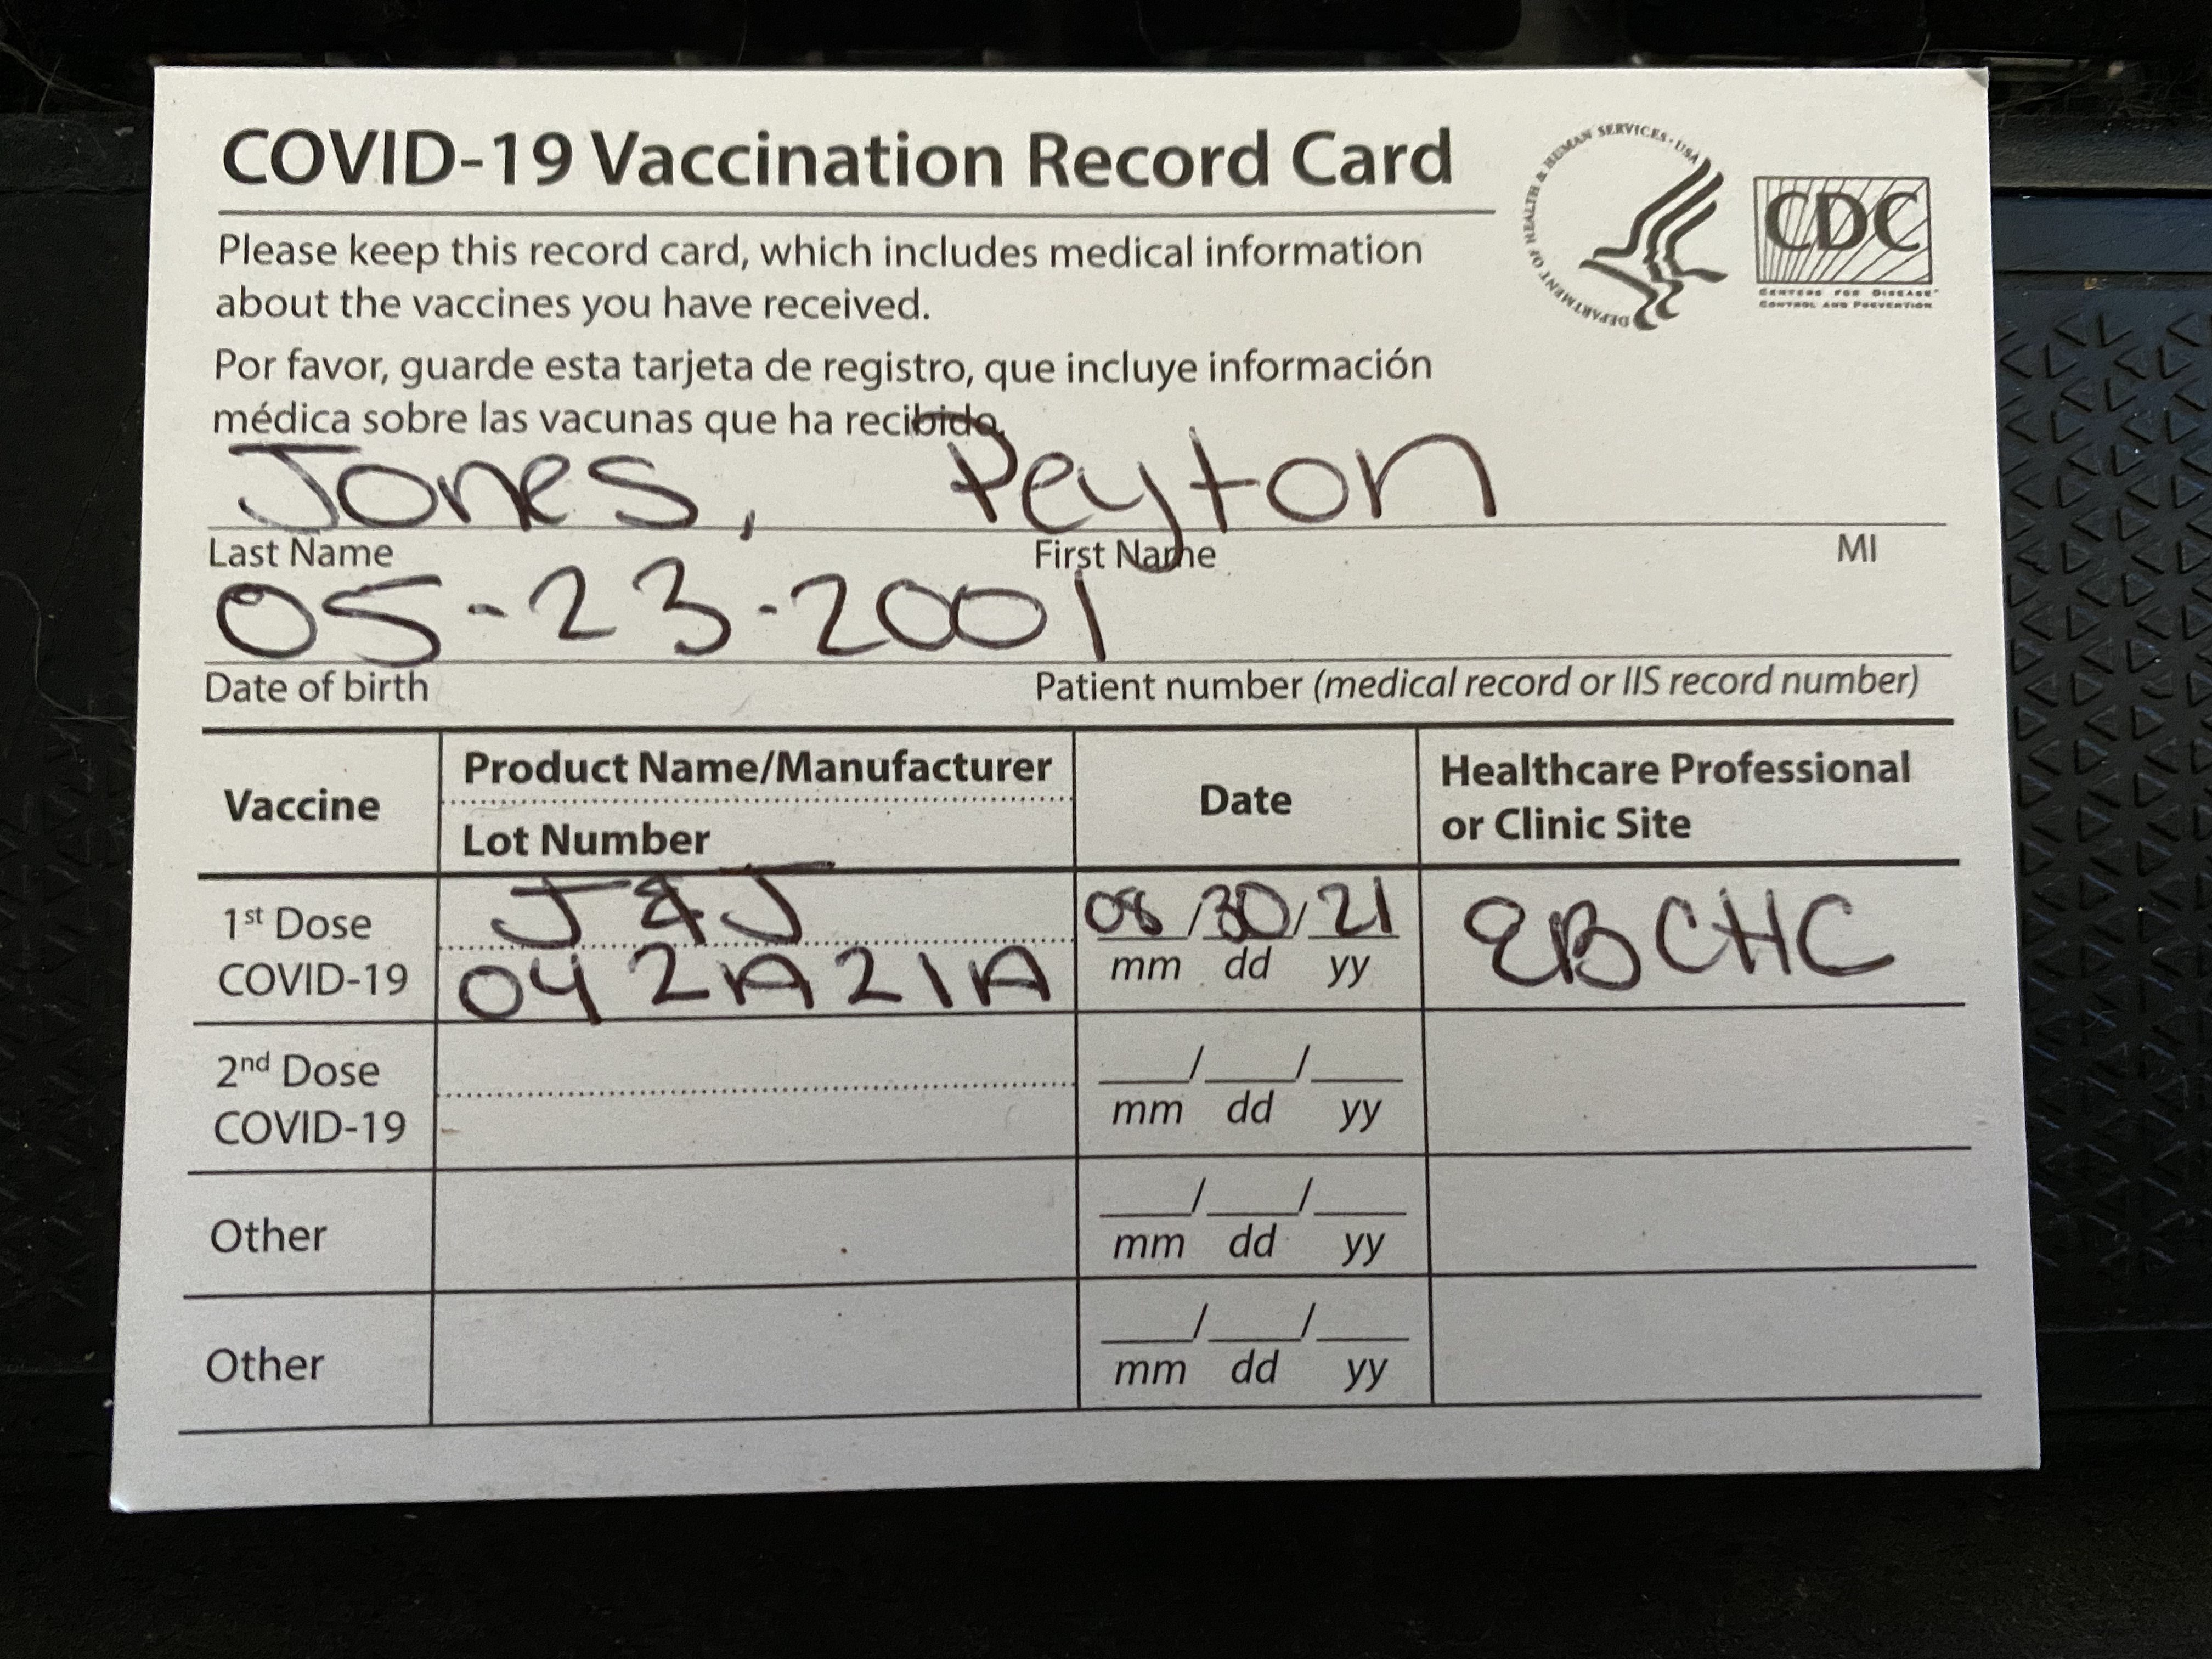 COVID-19 Vaccination Record Card
DEPARTMENT OF HEALTH & HUMAN SERVICES · USA
CDC
CENTERS FOR DISEASE
CONTROL AND PREVENTION
Please keep this record card, which includes medical information
about the vaccines you have received.
Por favor, guarde esta tarjeta de registro, que incluye información
médica sobre las vacunas que ha recibido.
Jones, Peyton
Last Name First Name MI
05-23-2001
Date of birth Patient number (medical record or IIS record number)
Vaccine
Product Name/Manufacturer
Lot Number
Date
Healthcare Professional
or Clinic Site
1st Dose
COVID-19
J & J
042A21A
08/30/21
mm dd yy
EBCHC
2nd Dose
COVID-19
___/___/___
mm dd yy
Other
___/___/___
mm dd yy
Other
___/___/___
mm dd yy